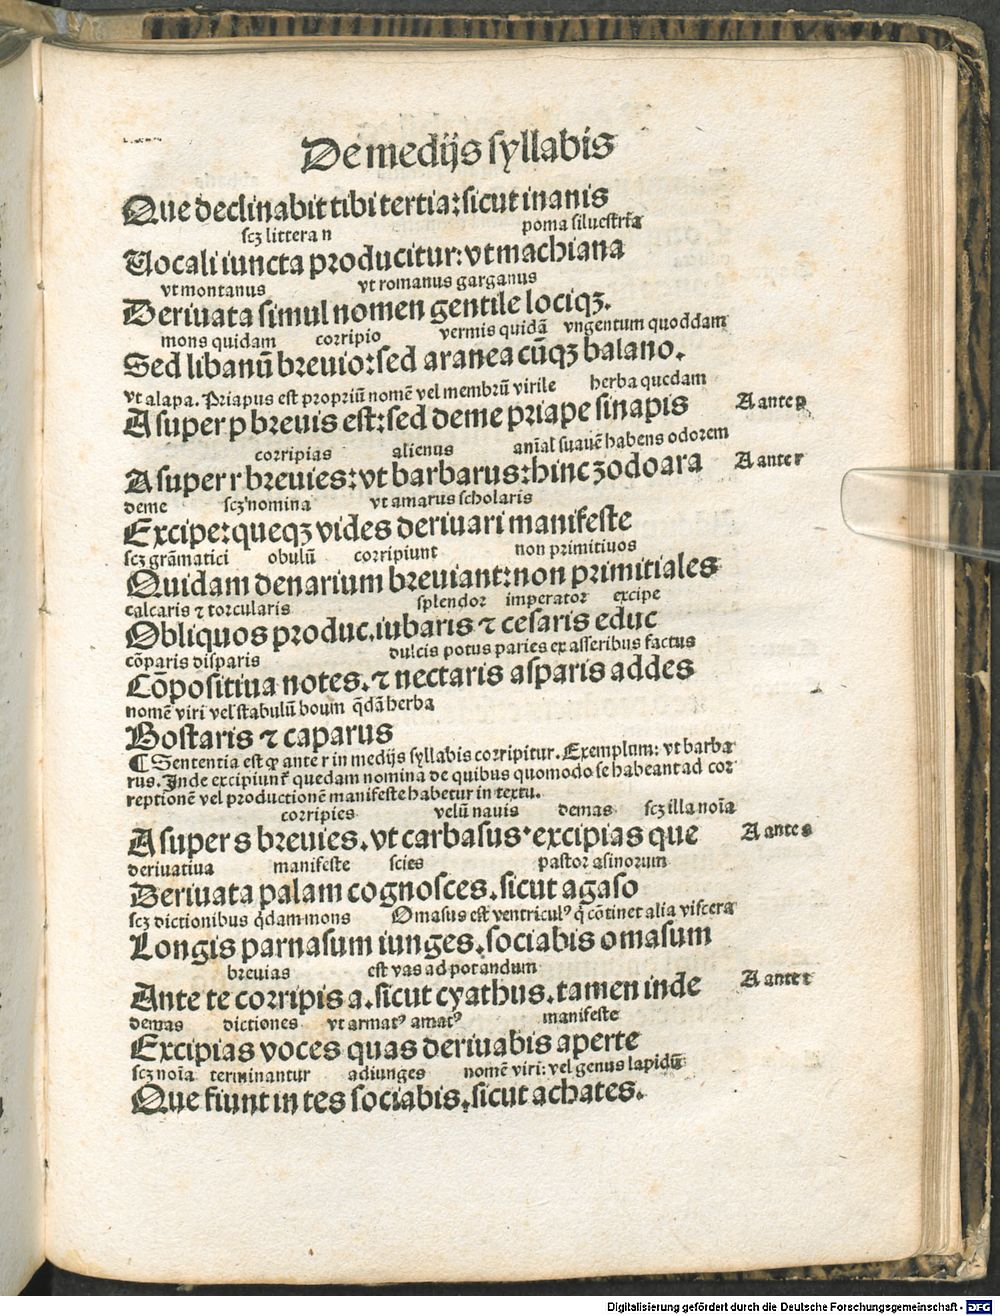 De medijs syllabis
Que declinabit tibi tertia: sicut inanis
scꝫ littera n poma siluestria
Uocali iuncta producitur: vt machiana
vt montanus vt romanus garganus
Deriuata simul nomen gentile lociqꝫ.
mons quidam corripio vermis quidā vngentum quoddam
Sed libanū breuio: sed aranea cūqꝫ balano.
vt alapa. Priapus est propriū nomē vel membrū virile herba quedam
A super p breuis est: sed deme priape sinapis A ante p
corripias alienus anīal suauē habens odorem
A super r breuies: vt barbarus: hinc zodoara A ante r
deme scꝫ nomina vt amarus scholaris
Excipe: queqꝫ vides deriuari manifeste
scꝫ grāmatici obulū corripiunt non primitiuos
Quidam denarium breuiant: non primitiales
calcaris ⁊ torcularis splendor imperator excipe
Obliquos produc. iubaris ⁊ cesaris educ
cōparis disparis dulcis potus paries ex asseribus factus
Cōpositiua notes. ⁊ nectaris asparis addes
nomē viri vel stabulū boum q̄dā herba
Bostaris ⁊ caparus
¶ Sententia est ꝙ ante r in medijs syllabis corripitur. Exemplum: vt barba
rus. Inde excipiunt̄ quedam nomina de quibus quomodo se habeant ad cor
reptionē vel productionē manifeste habetur in textu.
corripies velū nauis demas scꝫ illa noīa
A super s breuies. vt carbasus. excipias que A ante s
deriuatiua manifeste scies pastor asinorum
Deriuata palam cognosces. sicut agaso
scꝫ dictionibus q̄dam mons Omasus est ventriculꝰ q̄ cōtinet alia viscera
Longis parnasum iunges. sociabis omasum
breuias est vas ad potandum
Ante te corripis a. sicut cyathus. tamen inde A ante t
demas dictiones vt armatꝰ amatꝰ manifeste
Excipias voces quas deriuabis aperte
scꝫ noīa terminantur adiunges nomē viri: vel genus lapidū
Que fiunt in tes sociabis. sicut achates.
Digitalisierung gefördert durch die Deutsche Forschungsgemeinschaft - DFG